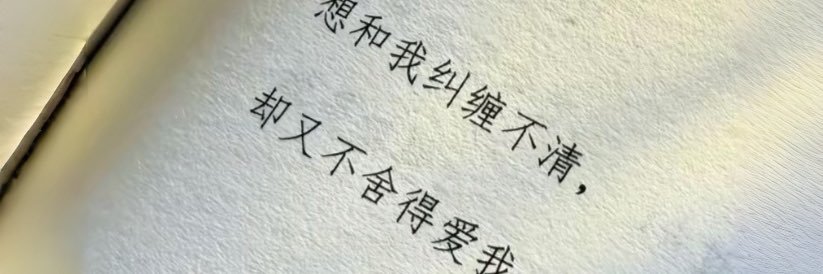 想和我纠缠不清，
却又不舍得爱我